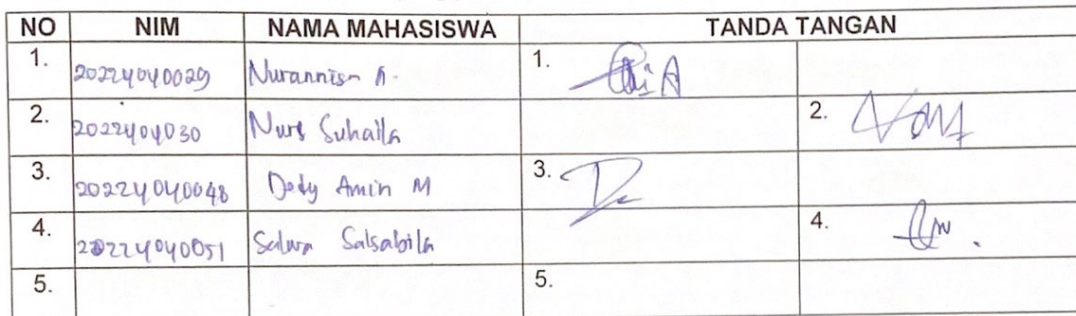 NO NIM NAMA MAHASISWA TANDA TANGAN
1. 20224040029 Nurannisa A. 1.
2. 2022404030 Nurs Suhaila 2.
3. 20224040048 Dedy Amin M 3.
4. 20224040051 Salwa Salsabila 4.
5. 5.